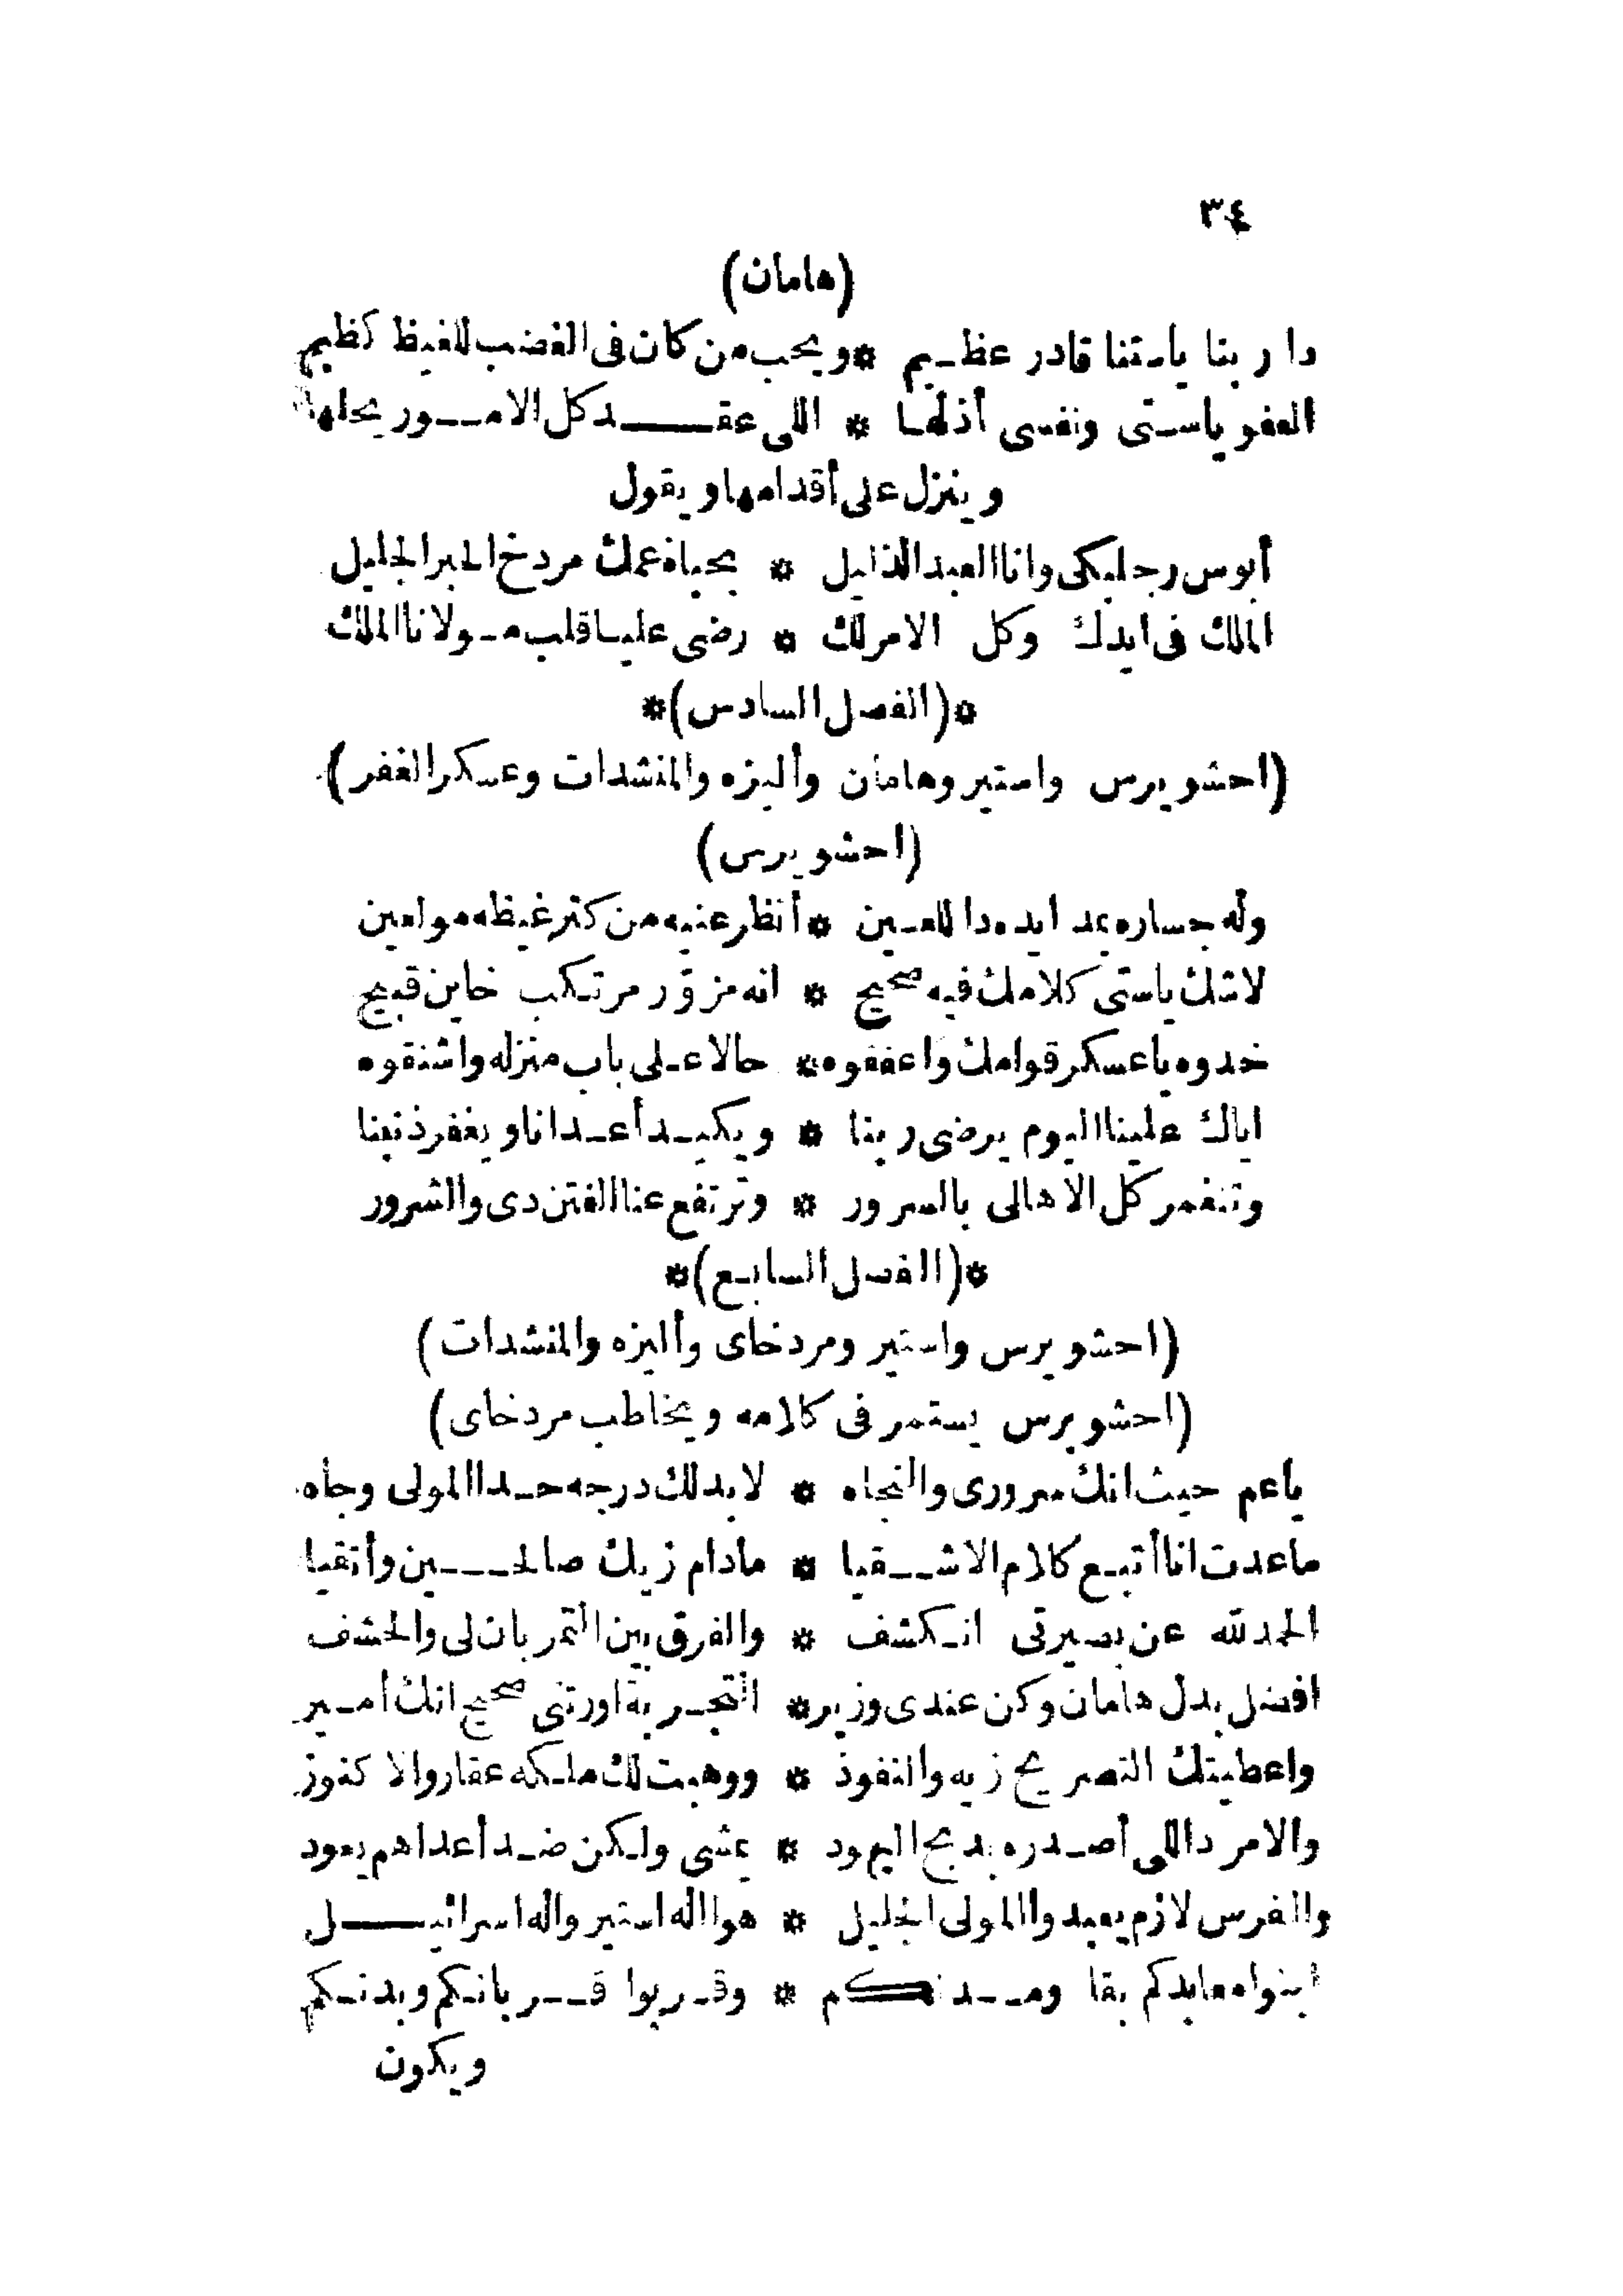 ٣٤
(هامان)
دا ربنا ياستنا قادر عظيم * ويحب من كان فى الغضب للغيظ كظيم
العفو ياستى ونفسى أذلها * اللى عقد كل الامور يحلها
وينزل على أقدامها ويقول
أبوس رجليكى وانا العبد الذليل * بحياة عمك مردخ الحبر الجليل
الملك فى ايدك وكل الامر لك * رضى عليا قلب مولانا الملك
*(الفصل السادس)*
(احشويرس واستير وهامان وأليزه والمنشدات وعسكر الغفر)
(احشويرس)
وله جساره يمد ايده دا اللعين * أنظر عنيه من كتر غيظه مولعين
لاشك ياستى كلامك فيه صحيح * انه مزوّر مرتكب خاين قبيح
خدوه ياعسكر قوامك واعفقوه * حالا على باب منزله واشنقوه
اياك علينا اليوم يرضى ربنا * ويكيد أعدانا ويغفر ذنبنا
وتنغمر كل الاهالى بالسرور * وترتفع عنا الفتن دى والشرور
*(الفصل السابع)*
(احشويرس واستير ومردخاى وأليزه والمنشدات)
(احشويرس يستمر فى كلامه ويخاطب مردخاى)
ياعم حيث انك سرورى والنجاه * لابد لك درجه حدا المولى وجاه
ماعدت انا أتبع كلام الاشقيا * مادام زيك صالحين وأتقيا
الحمد لله عن بصيرتى انكشف * والفرق بين التمر بان لى والحشف
افضل بدل هامان وكن عندى وزير * التجربة اورتنى صحيح انك أمير
واعطيتك التصريح زيه والنفوذ * ووهبت لك ملكه عقار والا كنوز
والامر دا اللى أصدره بدبح اليهود * يمشى ولكن ضد أعداهم يعود
والفرس لازم يعبدوا المولى الجليل * هو اله استير واله اسرائيل
ابنوا معابدكم بقا ومدنكم * وقربوا قربانكم وبدنكم
ويكون